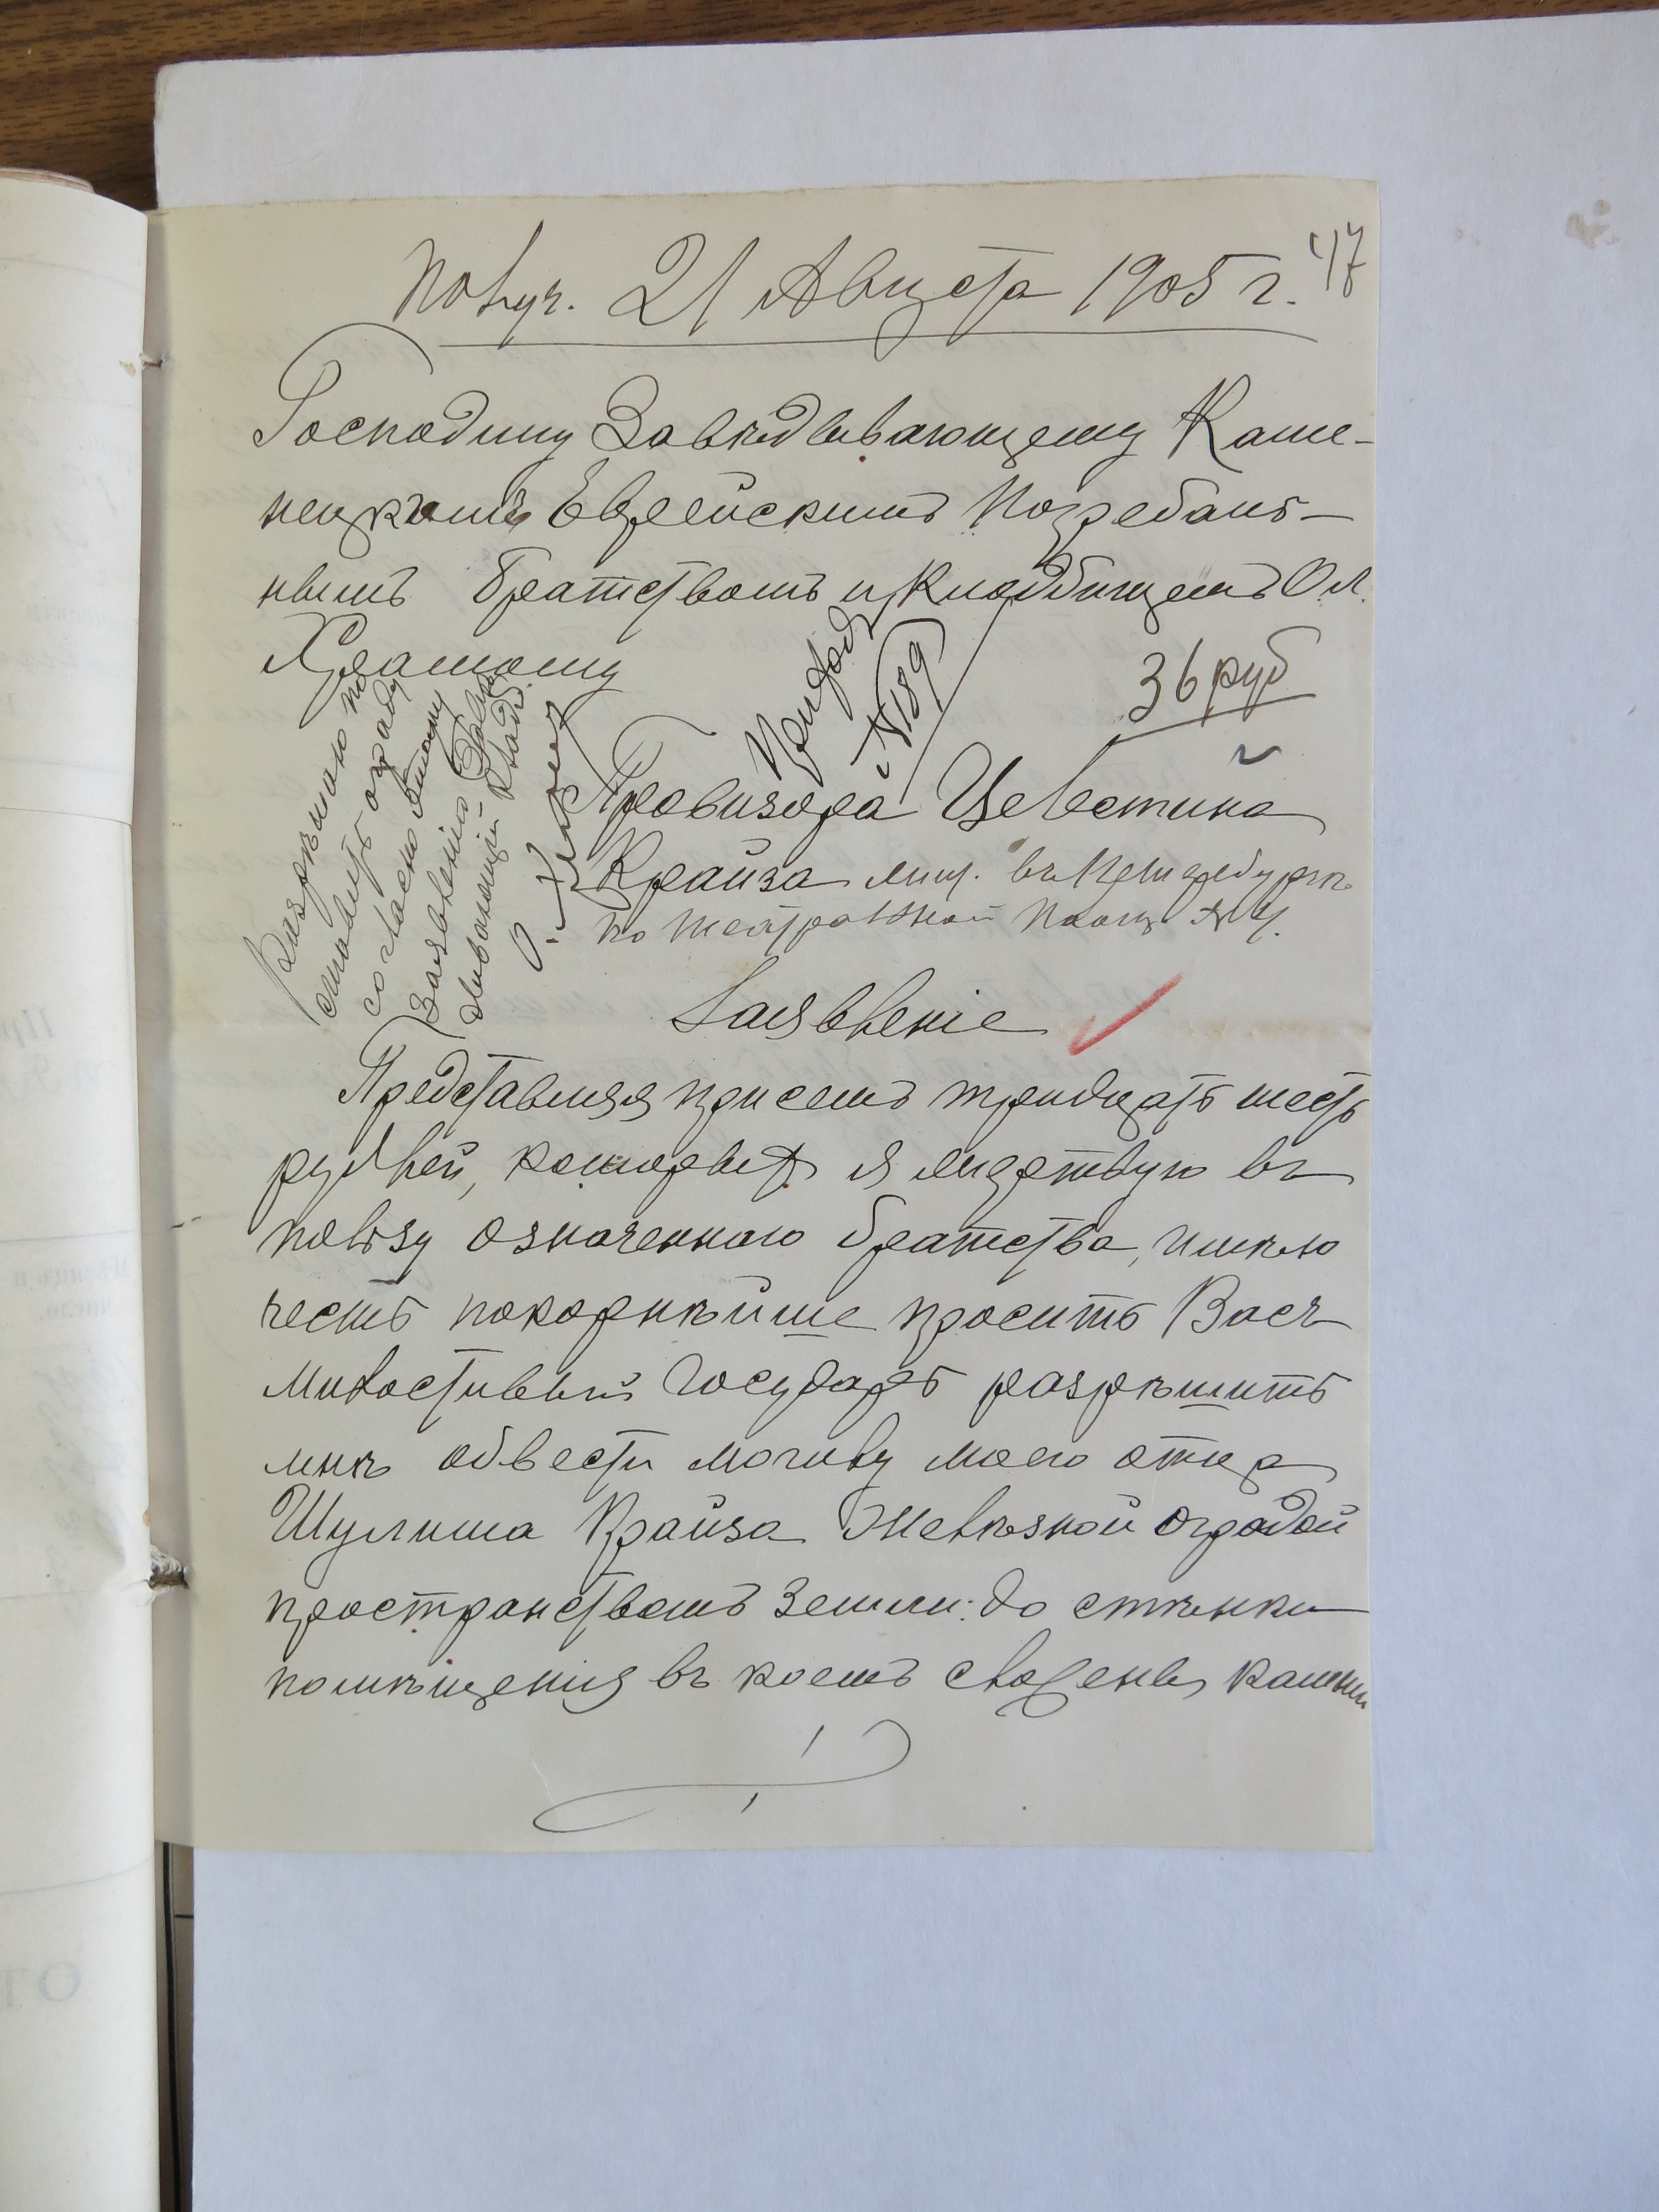 Получ. 21 Августа 1905 г.
47
Господину Завѣдывающему Каме-
нецкимъ Еврейскимъ Погребаль-
нымъ братствомъ и Кладбищемъ О.М.
Храмому
36 руб
Приход
№ 189
Разрѣшаю по
ставить ограду
согласно этому
Заявленію
Провизора Целестина
Крайза жит. въ Петербургѣ
по Театральной площ №
Заявленіе
Представляя при семъ тридцать шесть
рублей, которые я жертвую въ
пользу означеннаго братства, имѣю
честь покорнѣйше просить Васъ
Милостивый Государь разрѣшить
мнѣ обвести могилу моего отца
Шулима Крайза Желѣзной оградой
пространствомъ Земли: до стѣнки
помѣщенія въ коемъ сложены камни